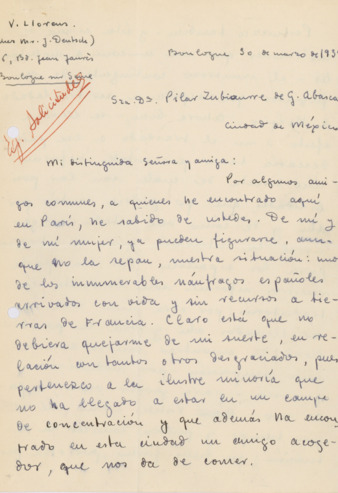 V. Llorens.
Mr. J. Deutsch)
6, Bd. Jean Jaurès
Boulogne sur Seine
Boulogne 30 de marzo de 193
Sra. Dª. Pilar Zubiaurre de G. Abasca
Ciudad de México
Mi distinguida Señora y amiga:
Por algunos ami-
gos comunes, a quienes he encontrado aquí
en París, he sabido de ustedes. De mí y
de mi mujer, ya pueden figurarse, aun-
que no la sepan, nuestra situación: uno
de los innumerables náufragos españoles
arrivados con vida y sin recursos a tie-
rras de Francia. Claro está que no
debiera quejarme de mi suerte, en re-
lación con tantos otros desgraciados, pues
pertenezco a la ilustre minoría que
no ha llegado a estar en un campo
de concentración y que además ha encon-
trado en esta ciudad un amigo acoge-
dor, que nos da de comer.